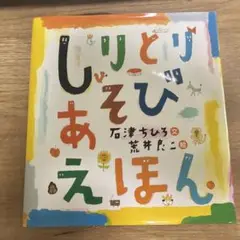 しりとり
あそび
えほん
石津ちひろ 文
荒井良二 絵